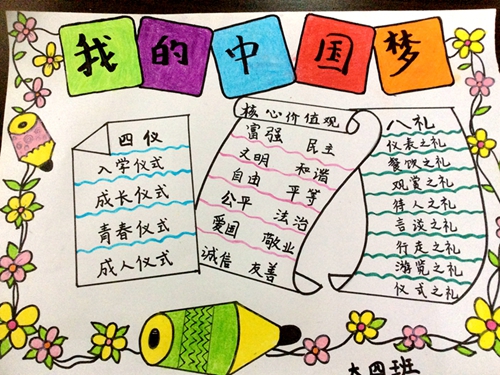 我的中国梦
四仪
入学仪式
成长仪式
青春仪式
成人仪式
核心价值观
富强 民主
文明 和谐
自由 平等
公平 法治
爱国 敬业
诚信 友善
八礼
仪表之礼
餐饮之礼
观赏之礼
待人之礼
言谈之礼
行走之礼
游览之礼
仪式之礼
四班